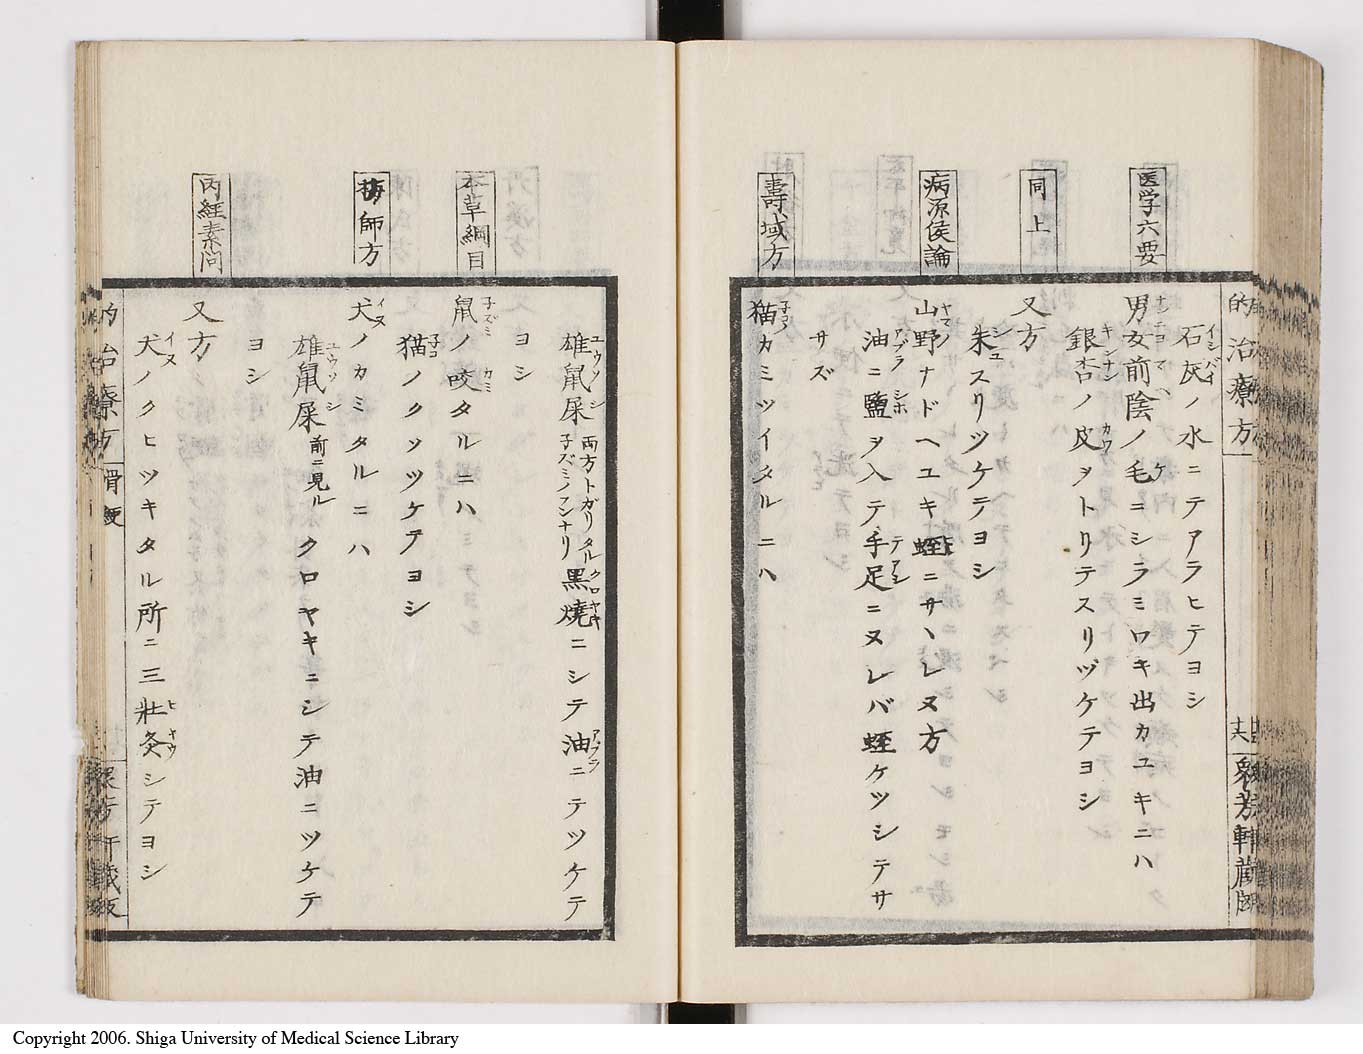 的治療方
衆芳軒蔵版
医学六要
石灰ノ水ニテアラヒテヨシ
男女前陰ノ毛ニシラミワキ出カユキニハ
銀杏ノ皮ヲトリテスリヅケテヨシ
同上
又方
朱スリツケテヨシ
病源侯論
山野ナドヘユキ蛭ニサヽレヌ方
油ニ鹽ヲ入テ手足ニヌレバ蛭ケツシテサ
サズ
壽域方
猫カミツイタルニハ
雄鼠屎 両方トガリタル子ズミノフンナリ 黒燒ニシテ油ニテツケテ
ヨシ
本草綱目
鼠ノ咬タルニハ
猫ノクソツケテヨシ
梅師方
犬ノカミタルニハ
雄鼠屎 前ニ見ル クロヤキニシテ油ニツケテ
ヨシ
内経素問
又方
犬ノクヒツキタル所ニ三壯灸シテヨシ
的治療方
骨鯁
Copyright 2006. Shiga University of Medical Science Library